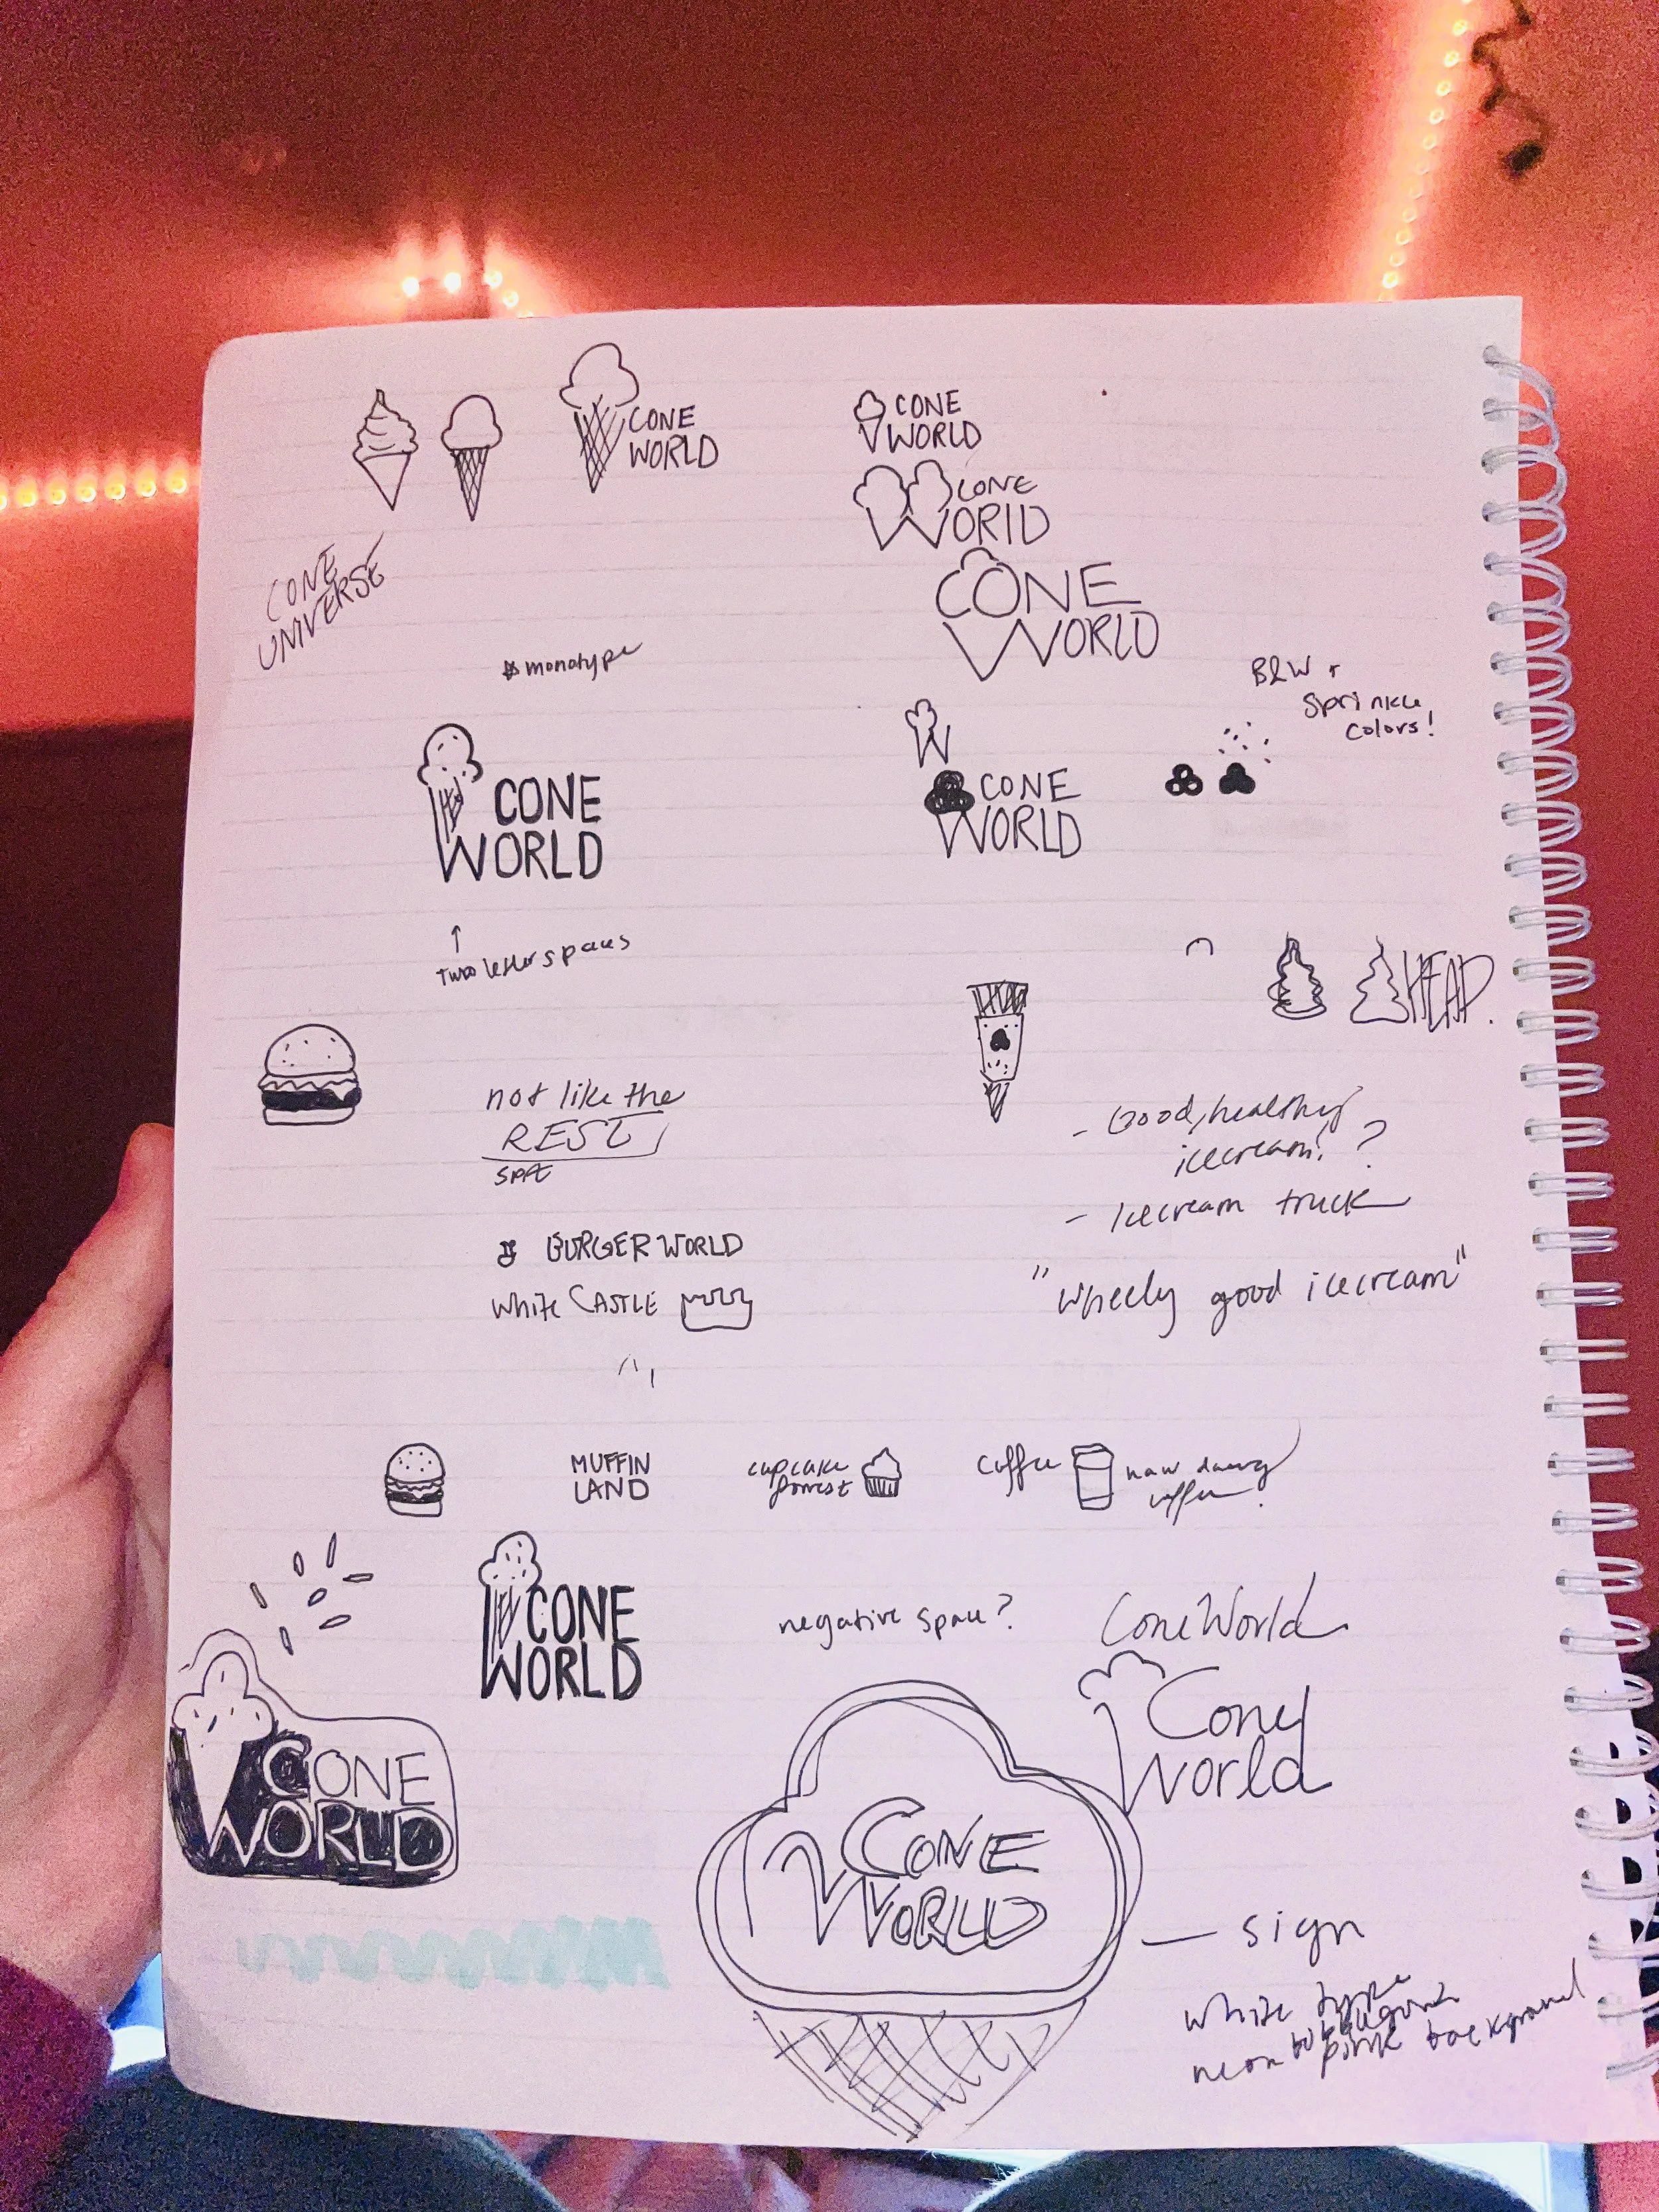 CONE
WORLD
CONE
WORLD
CONE
WORLD
CONE
UNIVERSE
CONE
WORLD
monotype
B&W +
Sprinkle
colors!
W
CONE
WORLD
CONE
WORLD
↑
two letter spaces
HEAD.
not like the
REST
- Good, healthy
icecream! ?
- Icecream truck
"Wheely good icecream"
BURGER WORLD
White CASTLE
MUFFIN
LAND
cupcake
forrest
coffee
CONE
WORLD
negative space?
ConeWorld
Cone
World
CONE
WORLD
CONE
WORLD
— sign
white type
neon pink background